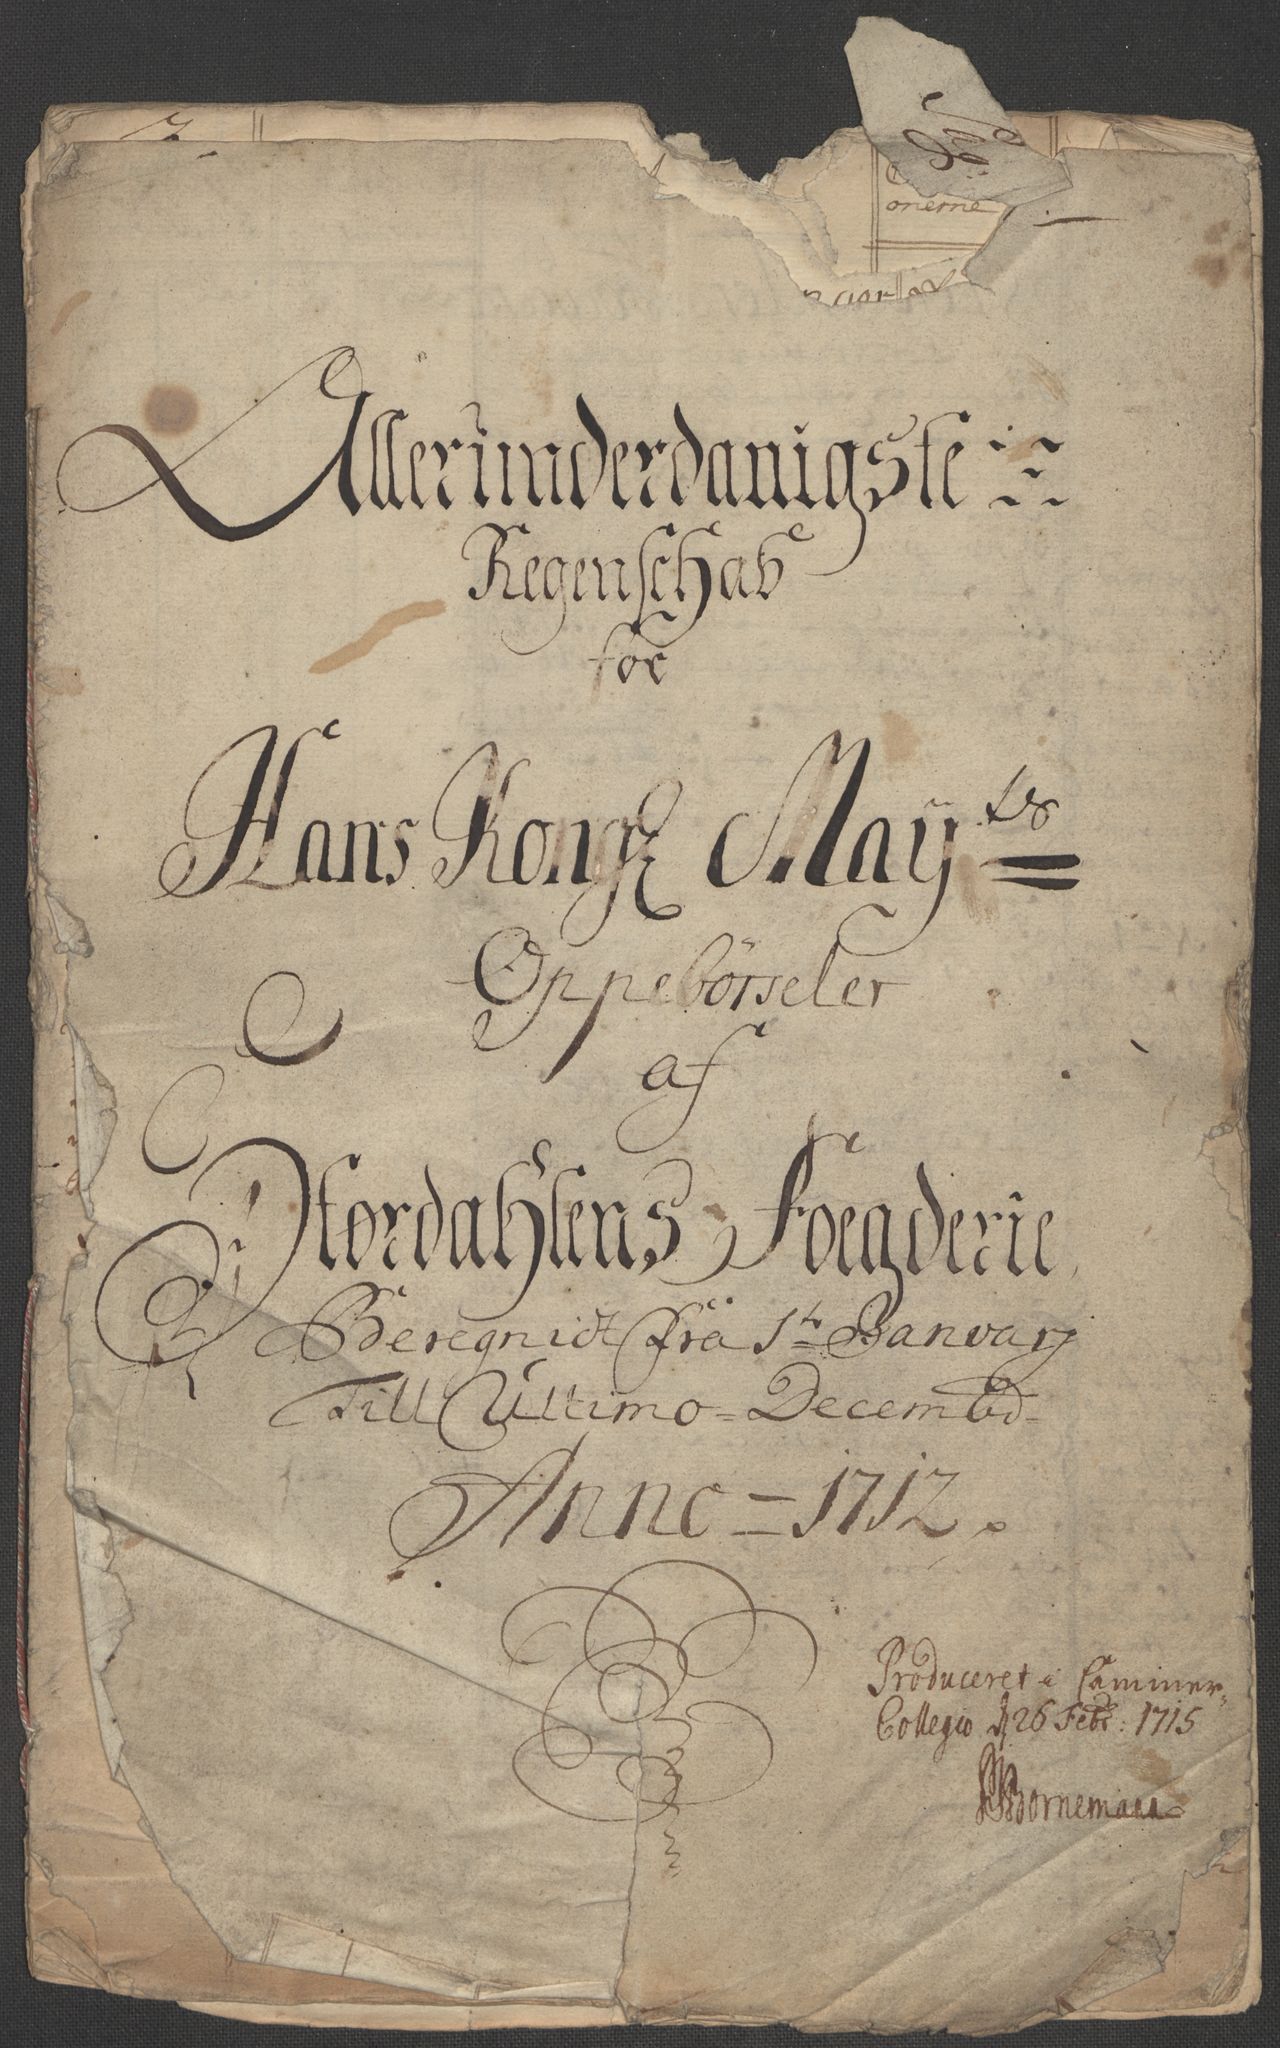 onerne
Allerunderdanigste
Regenschab
for
Hans Kongl May.ts
Oppebörseler
af
Stordahlens Foegderie
Beregnidt frå 1te Januarj
Till Ultimo = Decembr
Anno = 1712.
Produceret i Cammer-
Collegio d 26 Febr: 1715
Bornemann